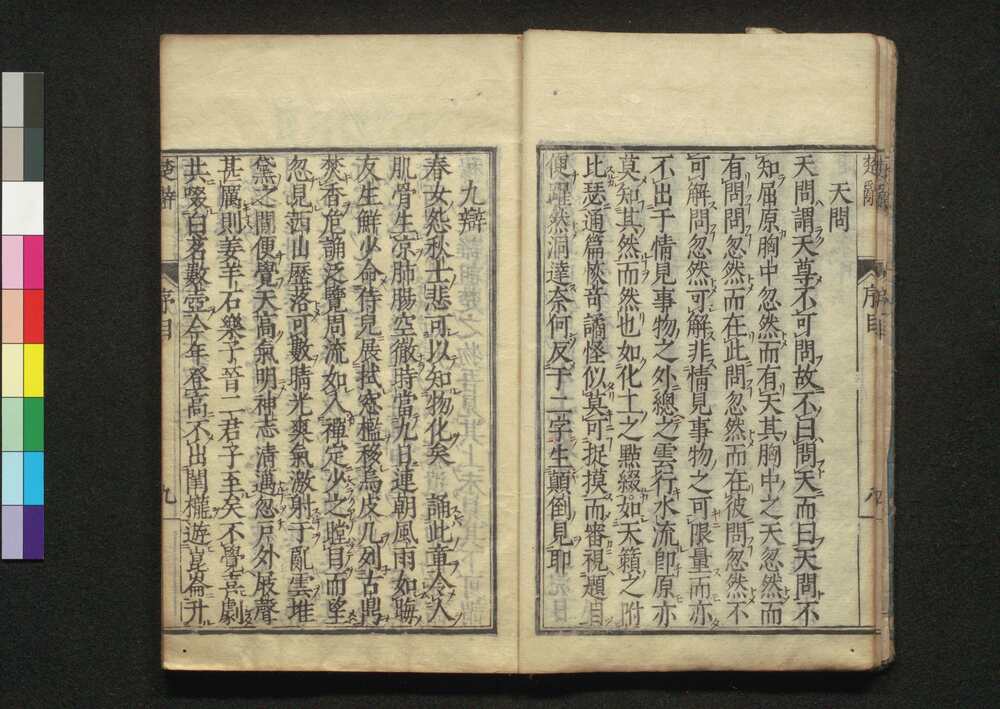 天問
天問謂天尊不可問故不曰問天而曰天問不
知屈原胸中忽然而有天其胸中之天忽然而
有問問忽然而在此問忽然而在彼問忽然不
可解問忽然可解非情見事物之可限量而亦
不出于情見事物之外總之雲行水流卽原亦
莫知其然而然也如化土之點綴如天籟之附
比瑟通篇恢奇譎怪似莫可捉摸而審視題目
便躍然洞達奈何反于二字生顛倒見耶
楚辭
序目
九
九辯
春女怨秋士悲可以知物化矣誦此章令人
肌骨生凉肺腸空徹時當九日連朝風雨如晦
友生鮮少命侍兒展拭窓檻移烏皮几列古鼎
焚香危誦泛覽周流如入禪定少之瞠目而望
忽見西山歷落可數晴光爽氣激射于亂雲堆
黛之間便覺天高氣明神志清邁忽戶外屐聲
甚厲則姜羊石樂子晉二君子至矣不覺喜劇
共啜白茗數壺今年登高不出閨櫳遊崑崙升
楚辭
序目
九